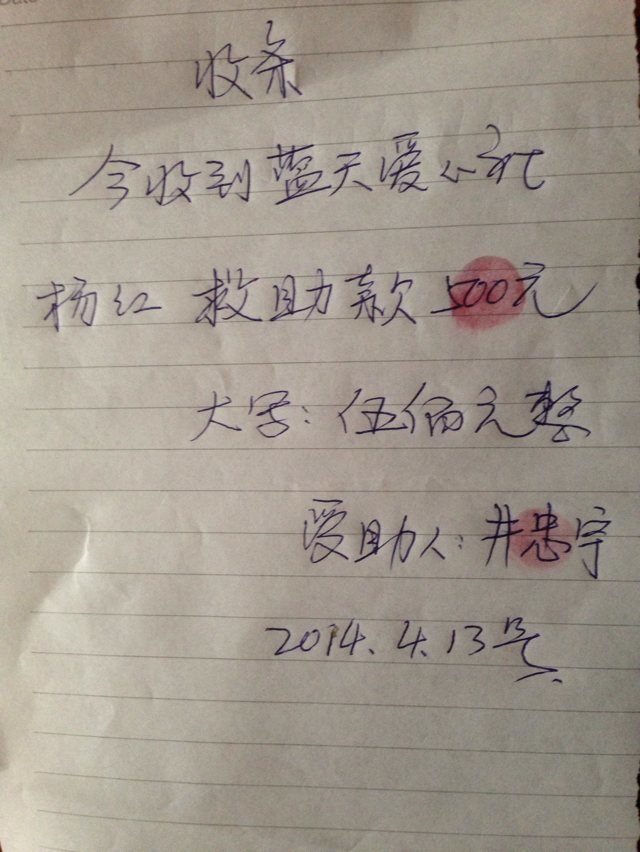 Date
收条
今收到蓝天爱心社
杨红 救助款 500元
大写：伍佰元整
受助人：井忠宇
2014.4.13号